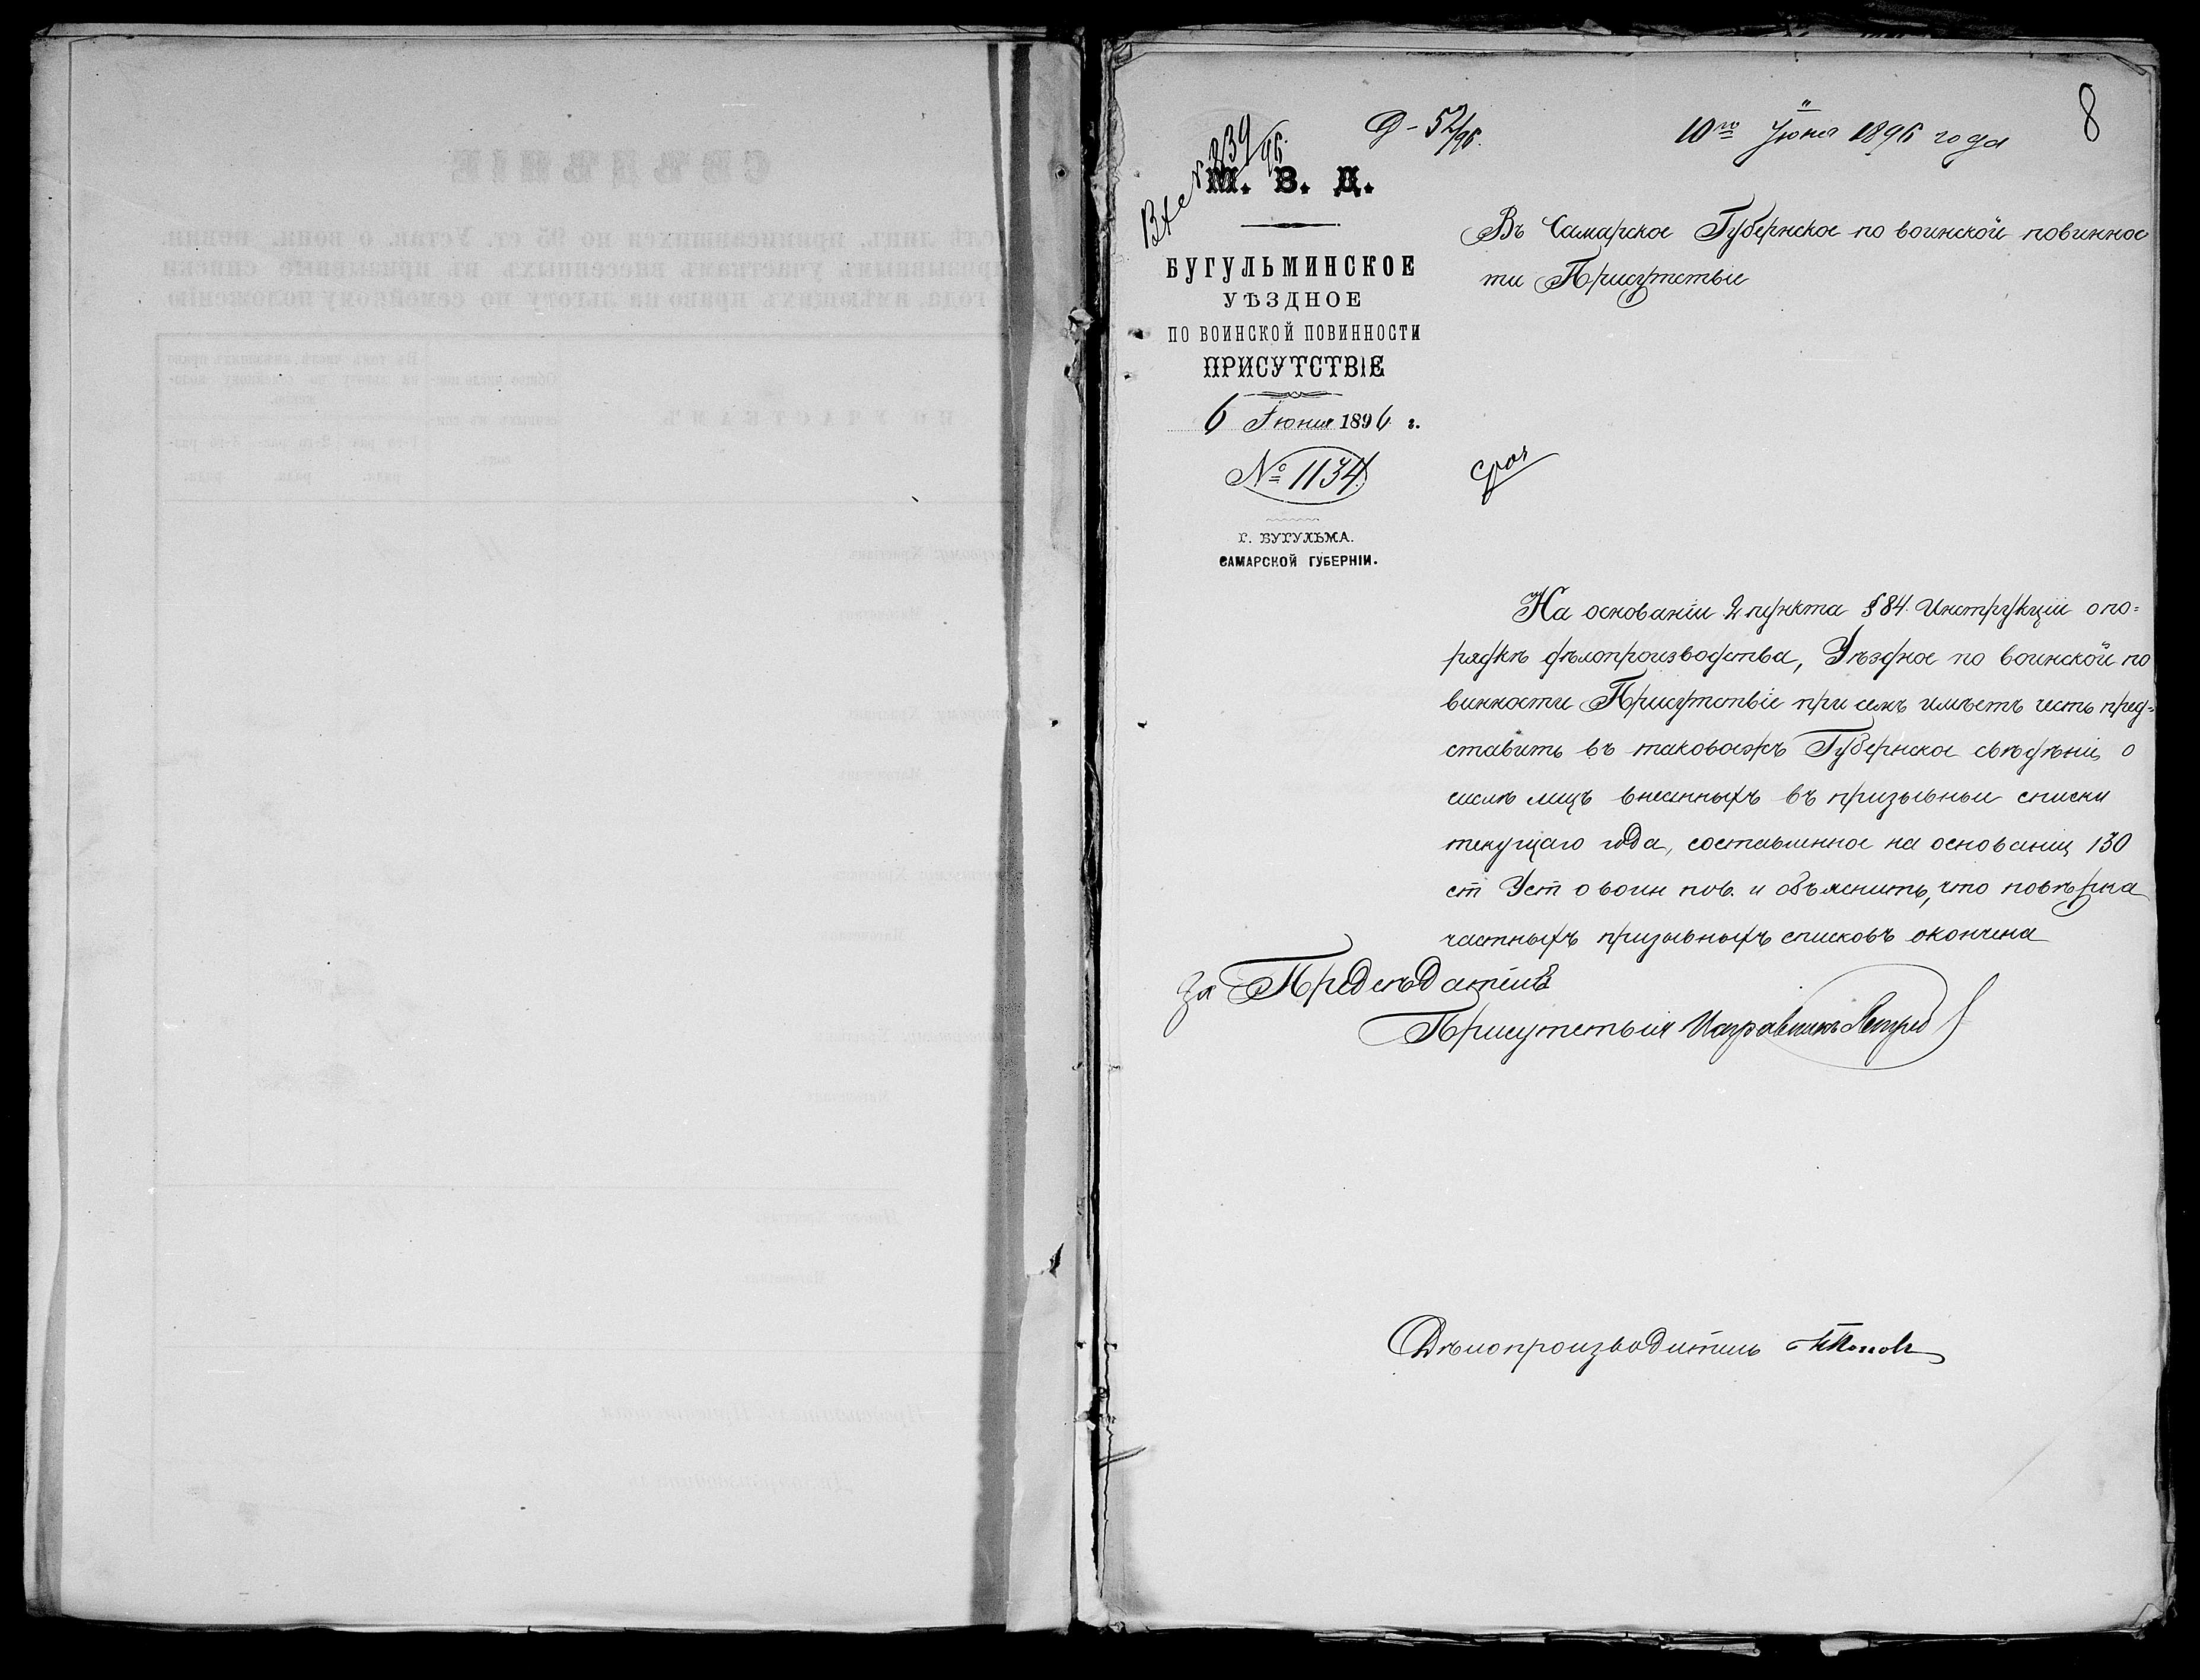 8
Д-52/96.
10го Іюня 1896 года
Вх № 839/96.
М. В. Д.
БУГУЛЬМИНСКОЕ
УѢЗДНОЕ
ПО ВОИНСКОЙ ПОВИННОСТИ
ПРИСУТСТВІЕ
6 Іюня 1896 г.
№ 1134
Г. БУГУЛЬМА.
САМАРСКОЙ ГУБЕРНІИ.
Въ Самарское Губернское по воинской повиннос
ти Присутствіе
На основаніи 2 пункта § 84. Инструкціи о по=
рядкѣ дѣлопроизводства, Уѣздное по воинской по
винности Присутствіе при семъ имѣетъ честь пред=
ставить въ таковоежъ Губернское свѣдѣніе о
числѣ лицъ внесенныхъ въ призывные списки
текущаго года, составленное на основаніи 130
ст Уст о воин пов. и объяснить, что повѣрка
частныхъ призывныхъ списковъ окончена
За Предсѣдателя
Присутствія Исправникъ
Дѣлопроизводитель Поповъ